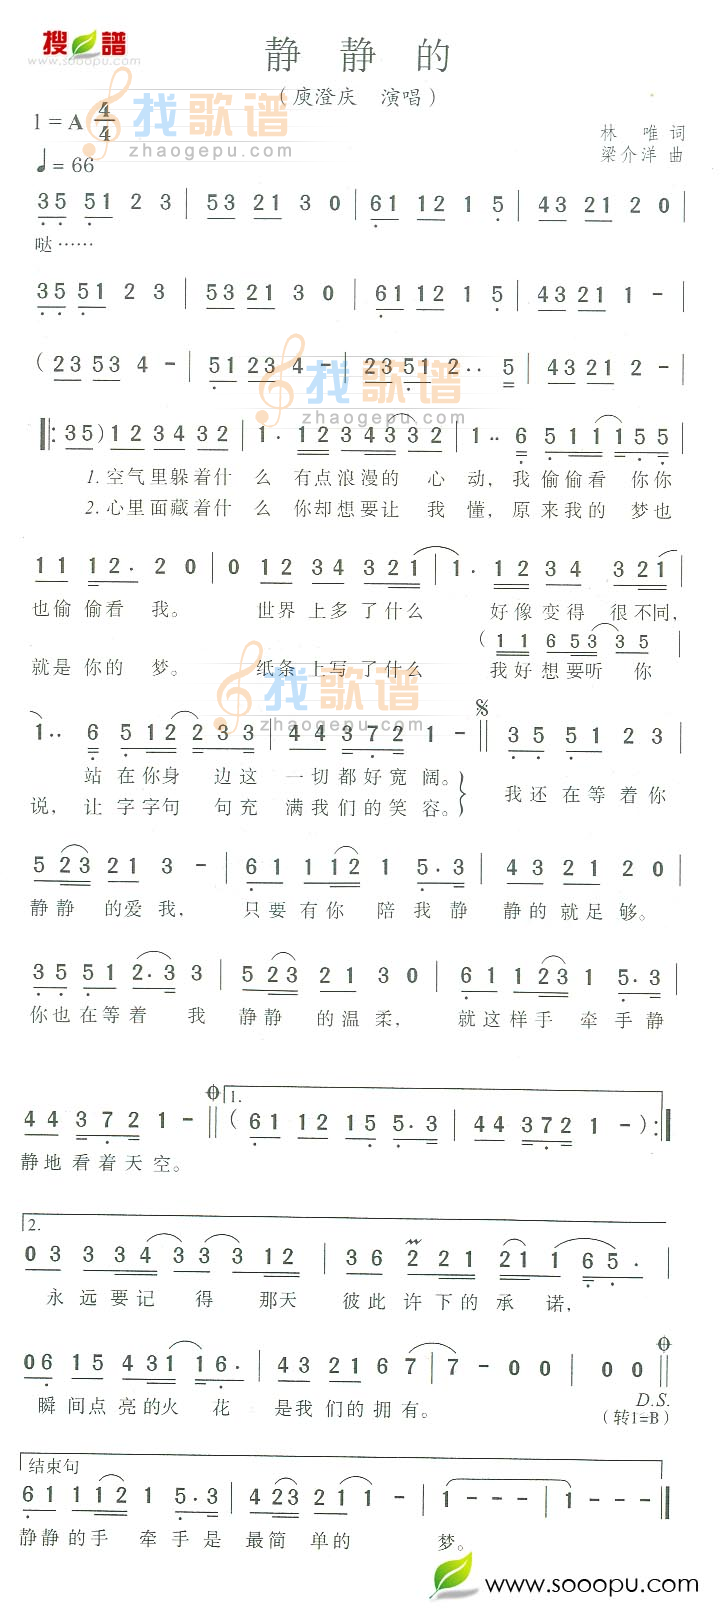 搜谱
www.sooopu.com
静 静 的
（庾澄庆 演唱）
1=A 4/4
找歌谱
zhaogepu.com
♩=66
林 唯 词
梁介洋 曲
35 51 2 3 | 53 21 3 0 | 61 12 1 5 | 43 21 2 0 |
哒……
35 51 2 3 | 53 21 3 0 | 61 12 1 5 | 43 21 1 - |
找歌谱
zhaogepu.com
(23 53 4 - | 51 23 4 - | 23 51 2·· 5 | 43 21 2 - |
‖: 35) 12 34 32 | 1· 12 34 33 32 | 1·· 6 51 11 15 5
1.空气里躲着什 么 有点浪漫的 心 动,我偷偷看 你你
2.心里面藏着什 么 你却想要让 我 懂,原来我的 梦也
11 12· 2 0 | 0 12 34 321 | 1· 12 34 321 |
也偷 偷看 我。 世界 上多了什么 好像变得 很不同,
(11 653 35
就是 你的 梦。 纸条 上写了什么 我好想要听 你
找歌谱
zhaogepu.com
1·· 6 512 233 | 44 372 1 - ‖ 35 51 2 3 |
站 在你身 边这 一切都好宽 阔。
说, 让 字字句 句充 满我们的笑 容。
我还在等着你
5 23 21 3 - | 61 112 1 5·3 | 43 21 2 0 |
静静 的爱我, 只要有你 陪我静 静的就足 够。
35 51 2·3 3 | 5 23 21 3 0 | 61 123 1 5·3 |
你也在等着 我 静静 的温柔, 就这样手 牵手静
44 372 1 - ‖ 1. (61 12 15 5·3 | 44 372 1 -):‖
静地看着天空。
2.
03 334 33 312 | 36 221 21 165· |
永远要记 得 那天 彼此许下的承 诺,
06 15 431 16· | 43 21 67 7 | 7 - 00 | 00 ‖
瞬间点 亮的火 花 是我们的拥有。
D.S.
(转1=B)
结束句
61 112 1 5·3 | 423 211 - | 1 - - - | 1 - - - ‖
静静的手 牵手是 最简 单的 梦。
www.sooopu.com